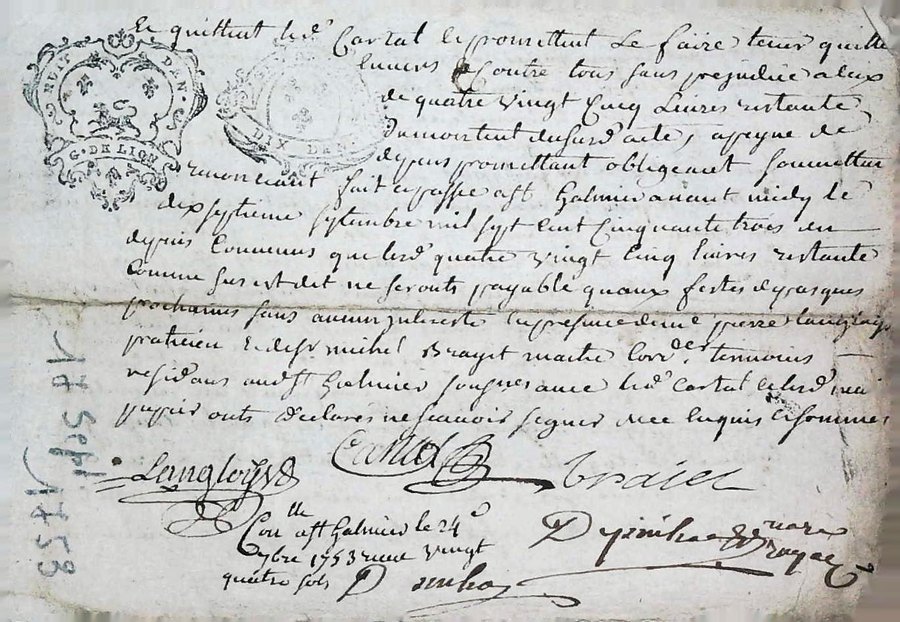 Et quittent led.t Cartal et promettent le faire tenir quitte
envers & Contre tous sans prejudice a eux
de quatre vingt Cinq Livres restante
du montent dususd. acte, a peyne de
depens promettant obligeant soumettan
renonceant fait et passé a St. Galmier avant midy le
dix septieme septembre mil sept cent cinquante trois
depuis Convenus que lesd. quatre vingt Cinq livres restante
Comme sus est dit ne seronts payable quaux festes de pasques
prochaines sans aucun interests en presence de me. pierre Langloys
praticien et de sr. michel Brayet maitre Cord.er temoins
residans aud. St Galmier sougnes avec led. Cartal et lesd.
ont declarés ne scavoir signer de ce enquis et sommes
Cartal
Langloys
Braiet
Con.lle a St Galmier le 24e
7bre 1753 receu vingt
quatre sols
NUIT DEN
G. DE LION
DIX DEN
17 Sept 1753